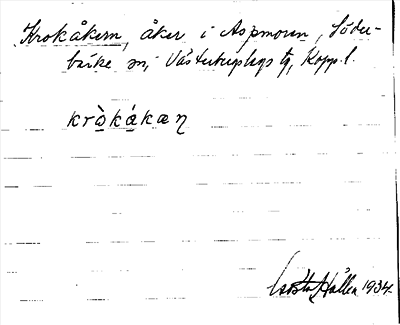 Krokåkern, åker i Aspmoren, Söder-
bärke sn, Västerbergslags tg, Kopp. l.
krò̱ká̱kæn
Gösta Hallén 1934